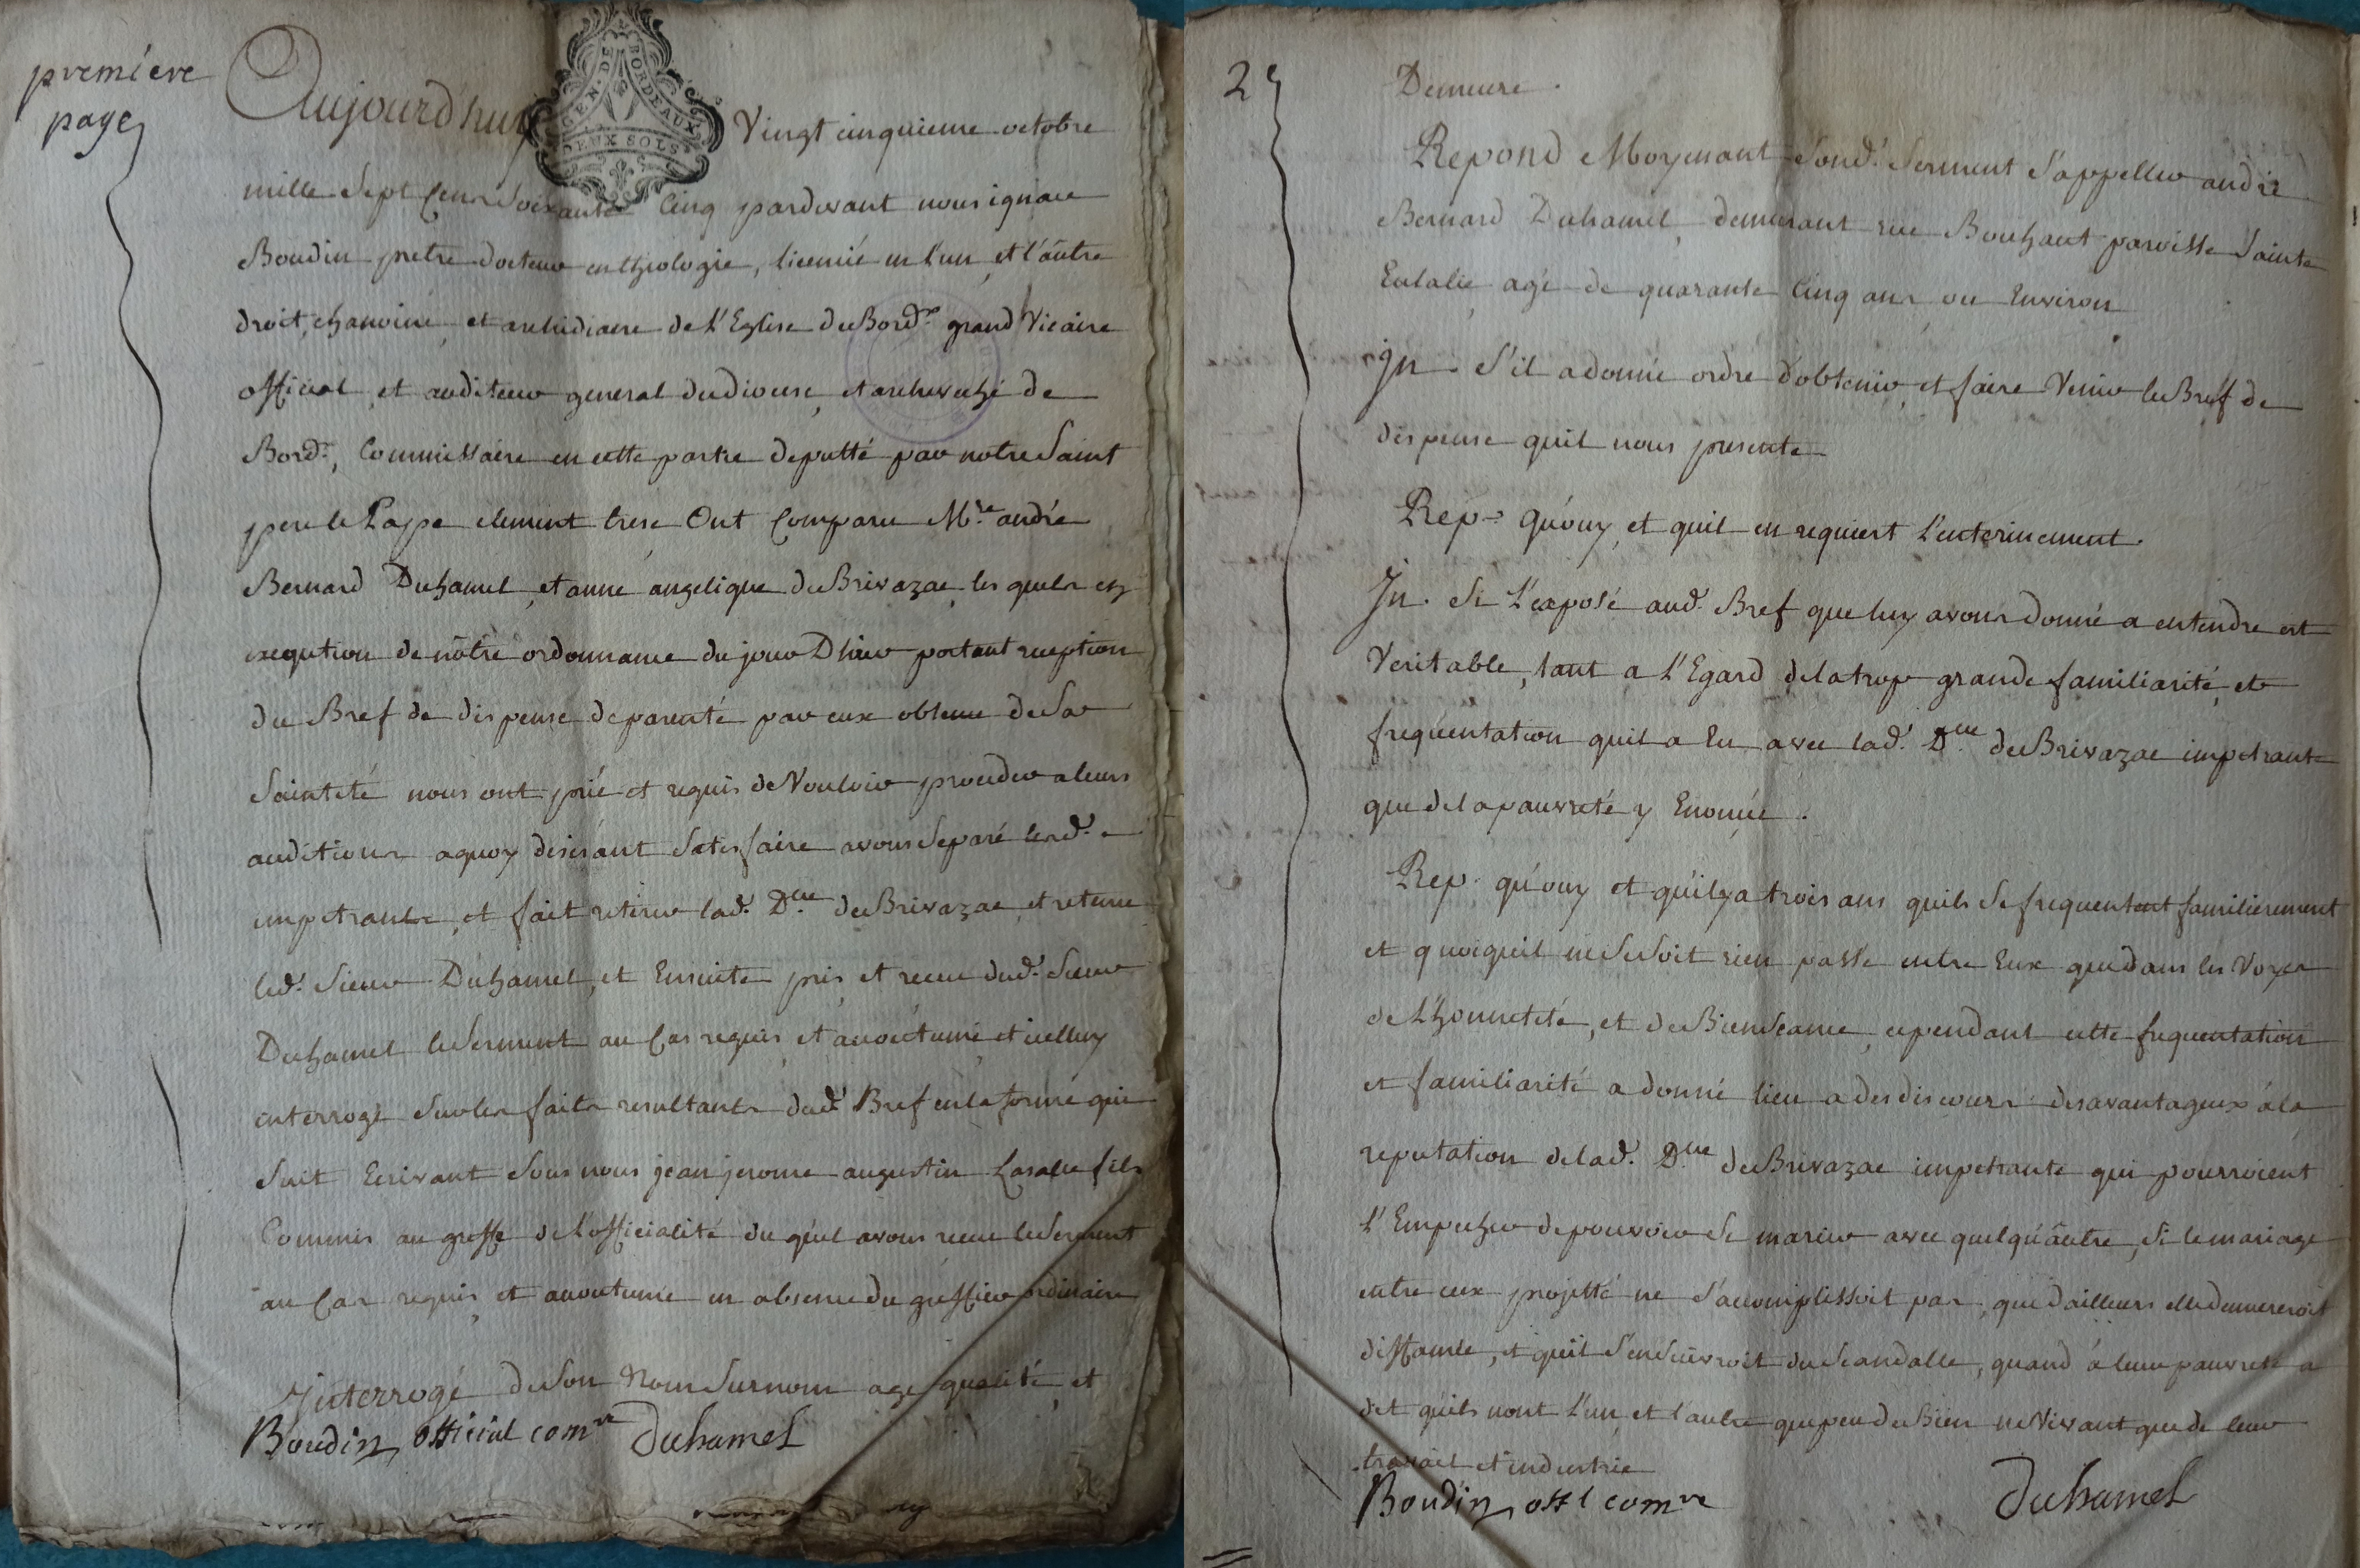 premiere
page
GEN. DE BORDEAUX
DEUX SOLS
Aujourd'huy Vingt cinquieme octobre
mille Sept Cens Soixante Cinq pardevant nous ignace
Boudin pretre docteur en theologie, licentié en l'un et l'autre
droit, chanoine et archidiacre de l'Eglise de Bordx grand Vicaire
official et auditeur general du diocese, et archeveché de
Bordx, Commissaire en cette partie deputté par notre Saint
pere le Pape clement trese Ont Comparu Mre andré
Bernard Duhamel, et anne angelique de Brivazac, les quels en
exeqution de nôtre ordonnance du jour D'hier portant reception
du Bref de dispense de parenté par eux obtenu de Sa
Sainteté nous ont prié et requis de Vouloir proceder a leurs
auditions a quoy desirant Satisfaire avons Separé lesd.
impetrants, et fait retirer lad. Dlle de Brivazac, et retenu
led. Sieur Duhamel, et Ensuite pris et receu dud. Sieur
Duhamel le Serment au Cas requis et accoutumé et icelluy
interrogé Sur les faits resultants dud. Bref en la forme qui
Suit Ecrivant Sous nous jean jerome augustin Lasalle fils
Commis au greffe de l'officialité du quel avons receu le Serment
au Cas requis et accoutumé en absence du greffier ordinaire
Interrogé de Son Nom Surnom age qualité et
Boudin official comre Duhamel
2
Demeure.
Repond Moyenant Sond. Serment S'appeller andré
Bernard Duhamel, demeurant rue Bouhaut paroisse Sainte
Eulalie, agé de quarante Cinq ans ou Environ
In. S'il a donné ordre d'obtenir, et faire Venir le Bref de
dispense quil nous presente
Rep. Qu'ouy, et quil en requiert l'enterinement.
In. Si L'exposé aud. Bref que luy avons donné a entendre est
Veritable, tant a l'Egard de la trop grande familiarité, et
frequentation quil a Eu avec lad. Dlle de Brivazac impetrante
que de la pauvreté y Enoncée.
Rep. qu'ouy et qu'il y a trois ans quils Se frequentent familierement
et quoiqueil ne Se Soit rien passé entre Eux que dans les Voyes
de L'honnetété, et de Bienseance, cependant cette frequentation
et familiarité a donné lieu a des discours desavantageux á la
reputation de lad. Dlle de Brivazac impetrante qui pourroient
l'Empecher de pouvoir Se marier avec quelqu'autre, Si le mariage
entre eux projetté ne S'accomplissoit pas, que d'ailleurs elle demeureroit
diffamée, et quil S'enSuivroit du Scandalle, quand á leur pauvreté a
dit qu'ils nont l'un et l'autre que peu de Bien ne Vivant que de leur
travail et industrie
Boudin offl comre Duhamel